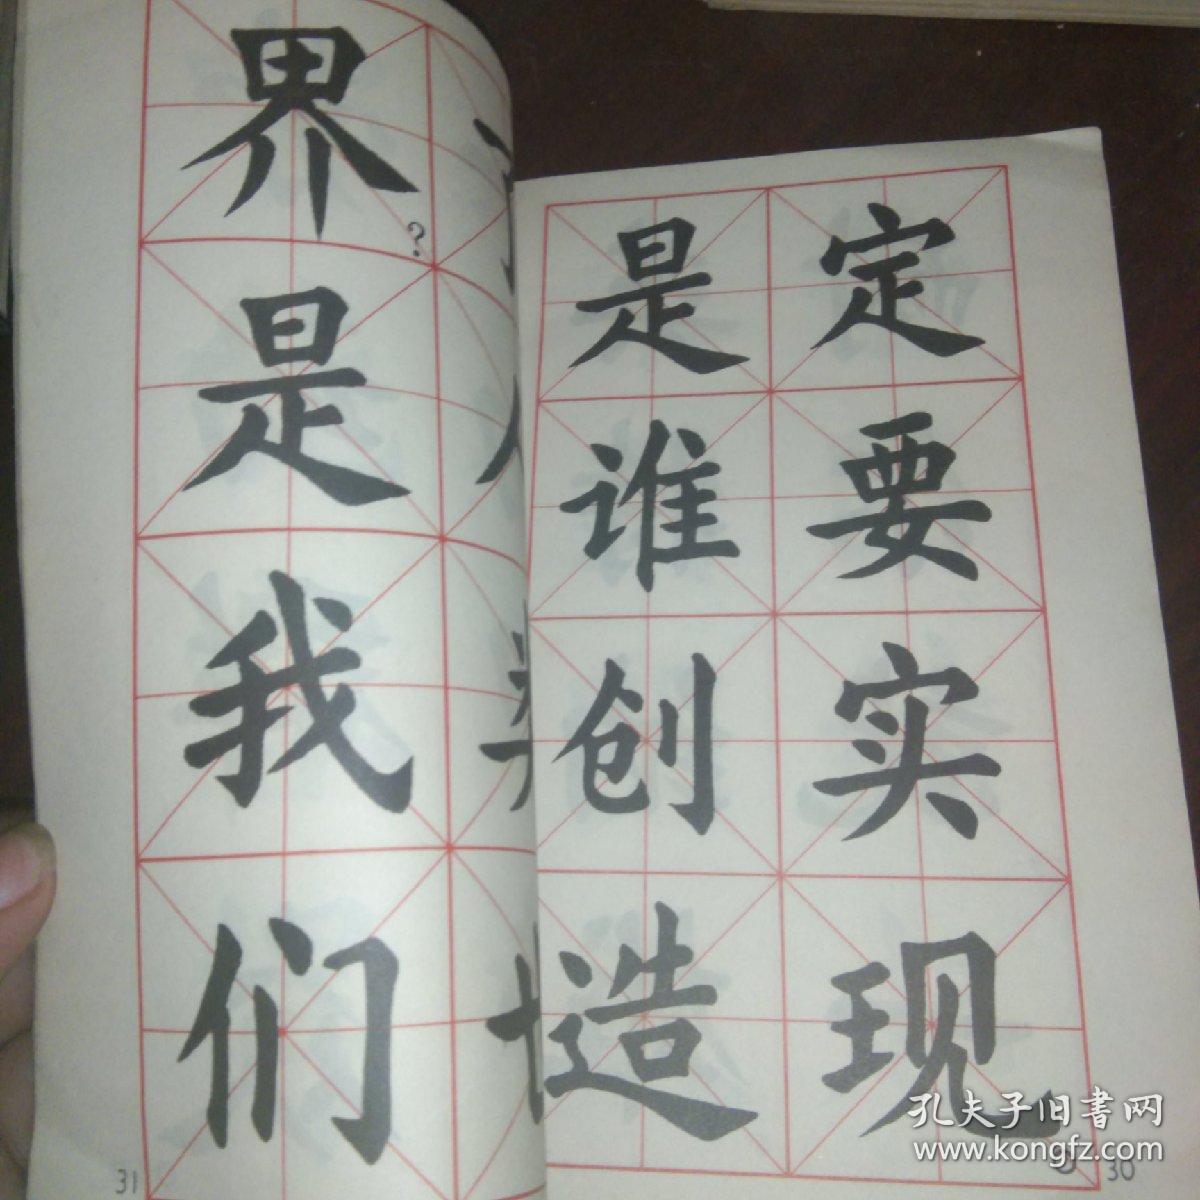 定要实现。
是谁创造
30
界?是我们
31
孔夫子旧書网
www.kongfz.com